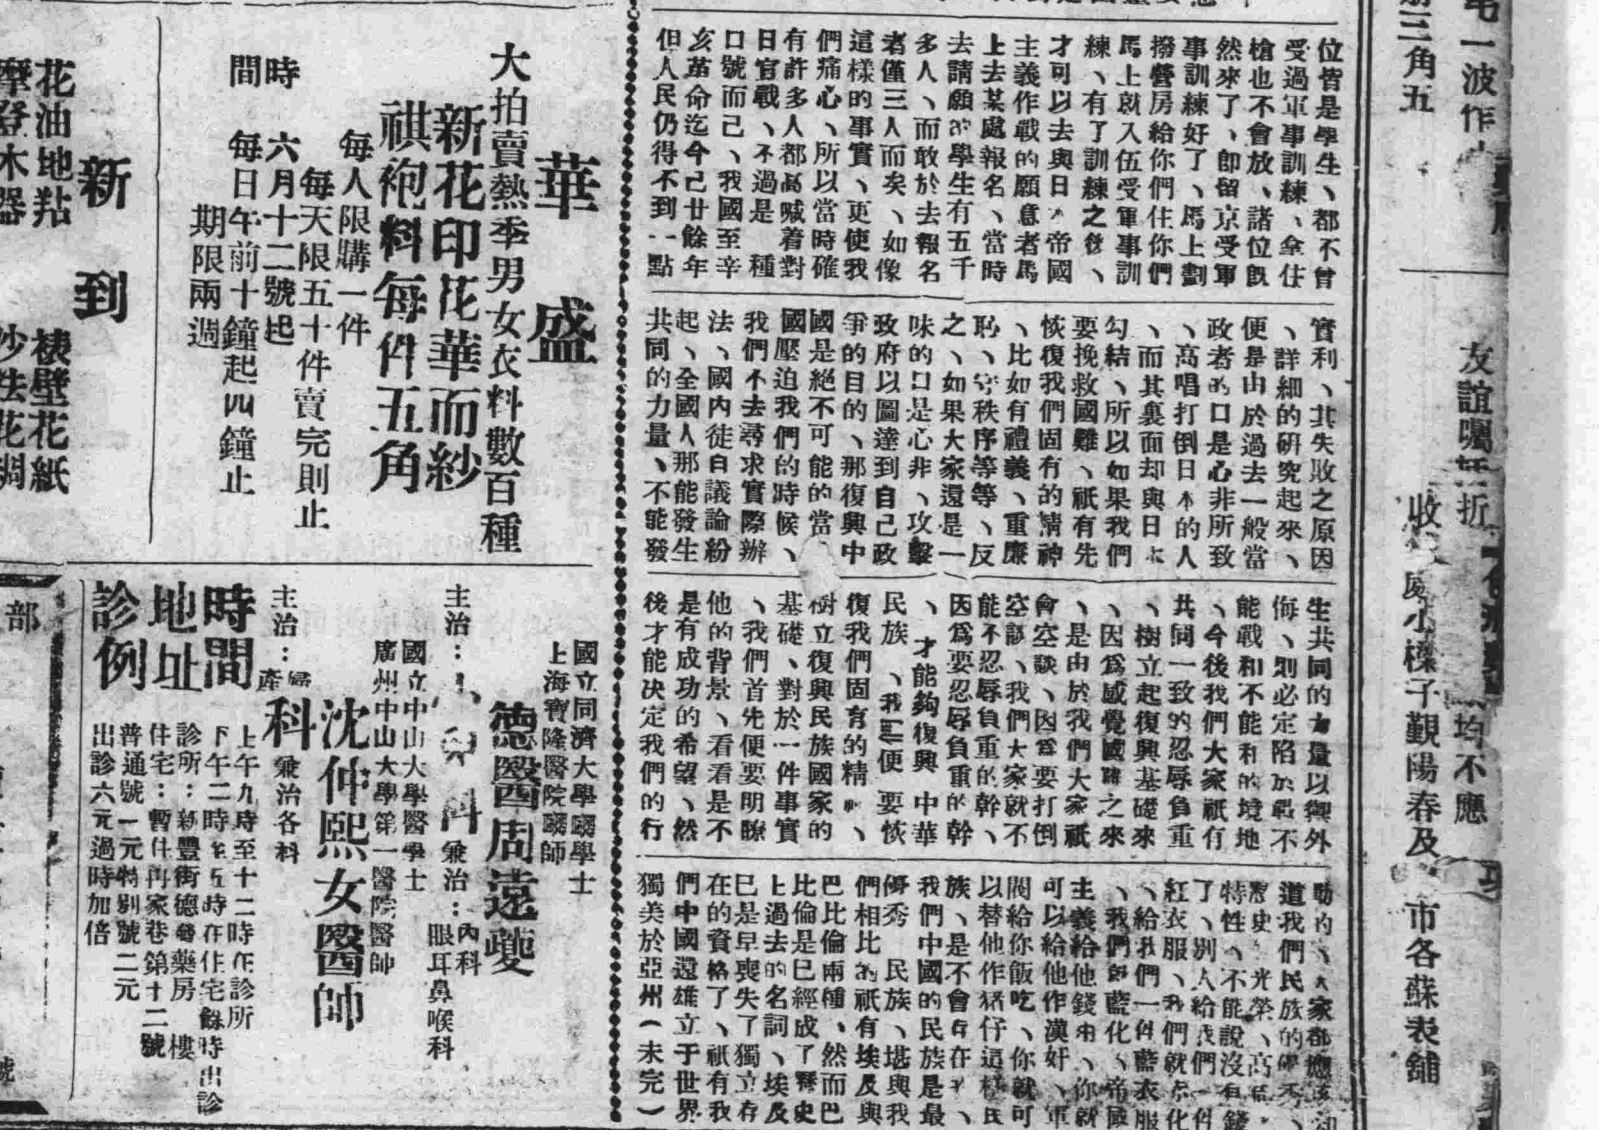 毛一波作
三角五
友誼囑
折
均不應
收
處小樑子觀陽春及
市各蘇表舖
位皆是學生、都不曾
受過軍事訓練、拿住
槍也不會放、諸位旣
然來了、卽留京受軍
事訓練好了、馬上劃
撥營房給你們住你們
馬上就入伍受軍事訓
練、有了訓練之後、
才可以去與日本帝國
主義作戰的願意者馬
上去某處報名、當時
去請願的學生有五千
多人、而敢於去報名
者僅三人而矣、如像
這樣的事實、更使我
們痛心、所以當時確
有許多人都高喊着對
日宣戰、不過是一種
口號而己、我國至辛
亥革命迄今己廿餘年
但人民仍得不到一點
實利、其失敗之原因
、詳細的硏究起來、
便是由於過去一般當
政者的口是心非所致
、高唱打倒日本的人
、而其裏面却與日本
勾結、所以如果我們
要挽救國難、祇有先
恢復我們固有的精神
、比如有禮義、重廉
恥、守秩序等等、反
之、如果大家還是一
味的口是心非、攻擊
政府以圖達到自己政
爭的目的、那復興中
國是絕不可能的當
國壓迫我們的時候、
我們不去尋求實際辦
法、國內徒自議論紛
起、全國人那能發生
共同的力量、不能發
生共同的力量以禦外
侮、則必定陷於戰不
能戰和不能和的境地
、今後我們大家祇有
共同一致的忍辱負重
、樹立起復興基礎來
、因爲感覺國難之來
、是由於我們大家祇
會空談、因爲要打倒
空談、我們大家就不
能不忍辱負重的幹、
因爲要忍辱負重的幹
、才能夠復興中華
民族、我們便要恢
復我們固有的精神、
樹立復興民族國家的
基礎、對於一件事實
、我們首先便要明瞭
他的背景、看看是不
是有成功的希望、然
後才能決定我們的行
動的、大家都應該知
道我們民族的優秀、
歷史光榮、高
特性、不能說沒有錢
了、別人給我們一件
紅衣服、我們就赤化
、給我們一件藍衣服
、我們卽藍化、帝國
主義給他錢用、你就
可以給他作漢奸、軍
閥給你飯吃、你就可
以替他作猪仔這樣民
族、是不會存在的、
我們中國的民族是最
優秀民族、堪與我
們相比的祇有埃及與
巴比倫兩種、然而巴
比倫是已經成了歷史
上過去的名詞、埃及
已是早喪失了獨立存
在的資格了、祇有我
們中國還雄立于世界
獨美於亞洲（未完）
華盛
大拍賣熱季男女衣料數百種
新花印花華而紗
祺袍料每件五角
每人限購一件
每天限五十件賣完則止
時間
六月十二號起
每日午前十鐘起四鐘止
期限兩週
新到
花油地點
裱壁花紙
摩登木器
國立同濟大學醫學士
上海寶隆醫院醫師
德醫周遠蘷
主治：
科
兼治：內科
眼耳鼻喉科
國立中山大學醫學士
廣州中山大學第一醫院醫師
沈仲熙女醫師
主治：
婦產
科
兼治各科
時間
上午九時至十二時在診所
下午二時至五時在住宅餘時出診
地址
診所：新豐街德濟藥房樓
住宅：暫住冉家巷第十二號
診例
普通號一元特別號二元
出診六元過時加倍
部
號